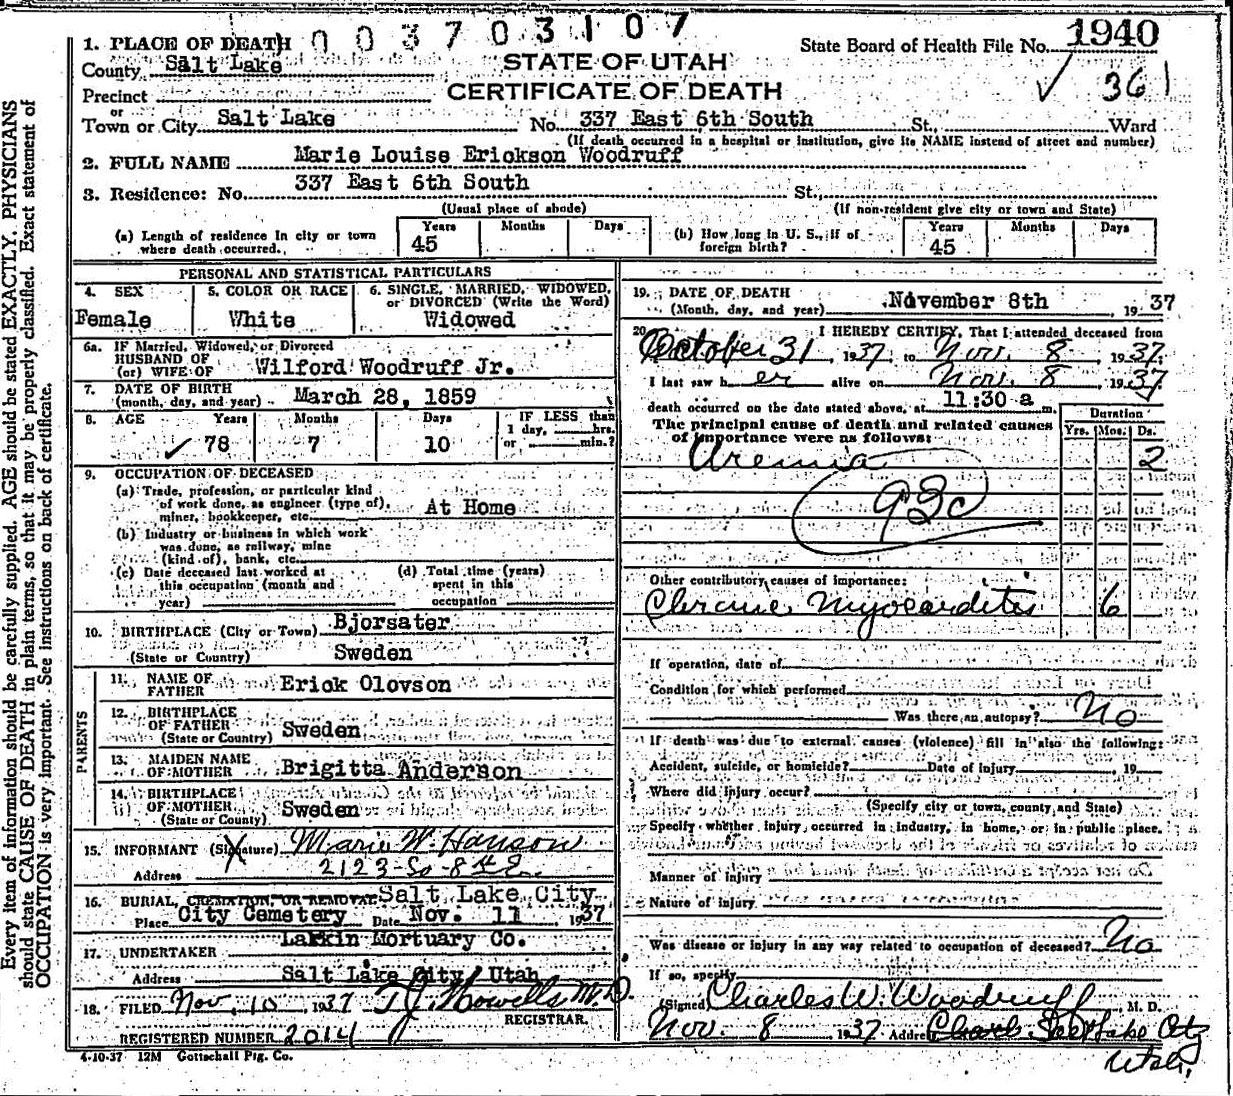 0 0 3 7 0 3 1 0 7
1. PLACE OF DEATH
County Salt Lake
Precinct
or
Town or City Salt Lake No. 337 East 6th South St., Ward
STATE OF UTAH
CERTIFICATE OF DEATH
State Board of Health File No. 1940
✓ 361
(If death occurred in a hospital or institution, give its NAME instead of street and number)
2. FULL NAME Marie Louise Erickson Woodruff
3. Residence: No. 337 East 6th South St.,
(Usual place of abode) (If non-resident give city or town and State)
(a) Length of residence in city or town where death occurred. Years 45 Months Days
(b) How long in U. S., if of foreign birth? Years 45 Months Days
PERSONAL AND STATISTICAL PARTICULARS
4. SEX Female
5. COLOR OR RACE White
6. SINGLE, MARRIED, WIDOWED, or DIVORCED (Write the Word) Widowed
6a. IF Married, Widowed, or Divorced
HUSBAND OF
(or) WIFE OF Wilford Woodruff Jr.
7. DATE OF BIRTH
(month, day, and year) March 28, 1859
8. AGE Years Months Days IF LESS than
✓ 78 7 10 1 day, hrs.
or min.?
9. OCCUPATION OF DECEASED
(a) Trade, profession, or particular kind
of work done, as engineer (type of),
miner, bookkeeper, etc. At Home
(b) Industry or business in which work
was done, as railway, mine
(kind of), bank, etc.
(c) Date deceased last worked at
this occupation (month and
year)
(d) Total time (years)
spent in this
occupation
10. BIRTHPLACE (City or Town) Bjorsater
(State or Country) Sweden
PARENTS
11. NAME OF
FATHER Erick Olovson
12. BIRTHPLACE
OF FATHER
(State or Country) Sweden
13. MAIDEN NAME
OF MOTHER Brigitta Anderson
14. BIRTHPLACE
OF MOTHER
(State or County) Sweden
15. INFORMANT (Signature) Marie W. Hanson
Address 2123 - So - 8th E.
16. BURIAL, CREMATION, OR REMOVAL Salt Lake City
Place City Cemetery Date Nov. 11 1937
17. UNDERTAKER Larkin Mortuary Co.
Address Salt Lake City, Utah
18. FILED Nov. 10 1937 T. J. Howells M.D.
REGISTRAR.
REGISTERED NUMBER 2014
4-10-37 12M Gottschall Ptg. Co.
19. DATE OF DEATH
(Month, day, and year) November 8th, 1937
20. I HEREBY CERTIFY, That I attended deceased from
October 31 1937 to Nov. 8 1937.
I last saw her alive on Nov. 8, 1937
death occurred on the date stated above, at 11:30 a m.
The principal cause of death and related causes
of importance were as follows:
Duration
Yrs. Mos. Ds.
Uremia 2
93c
Other contributory causes of importance:
Chronic Myocarditis 6
If operation, date of
Condition for which performed
Was there an autopsy? No
If death was due to external causes (violence) fill in also the following:
Accident, suicide, or homicide? Date of injury, 19
Where did injury occur?
(Specify city or town, county, and State)
Specify whether injury occurred in industry, in home, or in public place.
Manner of injury
Nature of injury
Was disease or injury in any way related to occupation of deceased? No
If so, specify
(Signed) Charles W. Woodruff M. D.
Nov. 8 1937 Address Salt Lake City
Utah.
Every item of information should be carefully supplied. AGE should be stated EXACTLY. PHYSICIANS
should state CAUSE OF DEATH in plain terms, so that it may be properly classified. Exact statement of
OCCUPATION is very important. See instructions on back of certificate.